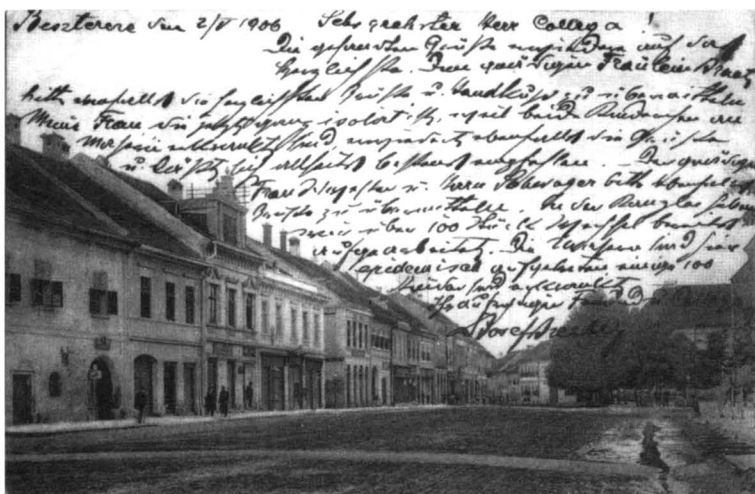 Beszterce den 2/V 1906 Sehr geehrter Herr Collega !
Die gesandten Grüße erwiedern auf das
herzlichste. Dem gnädigen Fräulein Braut
bitte ebenfalls die herzlichsten Grüße u. Handküsse zu übermitteln.
Meine Frau die jetzt ganz isolirt ist, weil beide Kinderchen an
Masern erkrankt sind, erwiedert ebenfalls die Grüße
u. läßt sich allseits bestens empfehlen. Der gnädigen
Frau u. Herrn Schwager bitte ebenfalls
Grüße zu übermitteln. In der Kanzlei haben
wir über 100 Stück Wechsel bereits
aufgearbeitet. Die Masern sind hier
epidemisch aufgetreten einige 100
Kinder sind erkrankt
Ihr aufrichtiger Freund
Josef